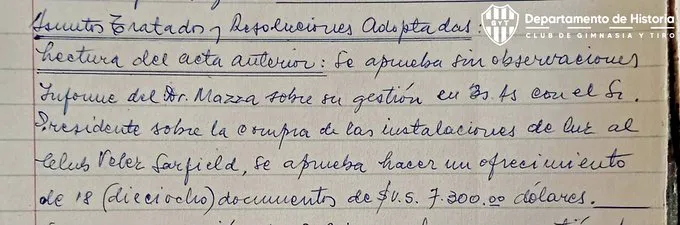 Asuntos Tratados y Resoluciones Adoptadas:
Departamento de Historia
CLUB DE GIMNASIA Y TIRO
GYT
Lectura del acta anterior: Se aprueba sin observaciones
Informe del Dr. Mazza sobre su gestión en Bs. As con el Sr.
Presidente sobre la compra de las instalaciones de luz al
Club Velez Sarfield, Se aprueba hacer un ofrecimiento
de 18 (dieciocho) documentos de $U.S. 7.300.00 dólares.